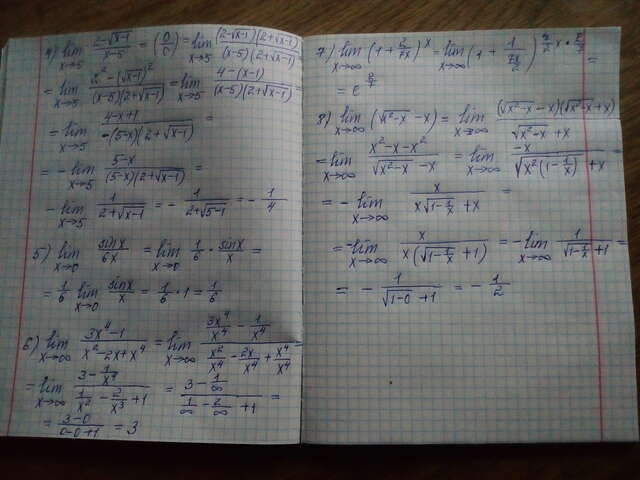 4) lim x→5 (2-√x-1)/(x-5) = (0/0) = lim x→5 (2-√x-1)(2+√x-1)/(x-5)(2+√x-1) =
= lim x→5 2²-(√x-1)²/(x-5)(2+√x-1) = lim x→5 4-(x-1)/(x-5)(2+√x-1) =
= lim x→5 4-x+1/-(5-x)(2+√x-1) =
= - lim x→5 5-x/(5-x)(2+√x-1) =
- lim x→5 1/2+√x-1 = - 1/2+√5-1 = - 1/4
5) lim x→0 sinx/6x = lim x→0 1/6 · sinx/x =
= 1/6 lim x→0 sinx/x = 1/6 · 1 = 1/6
6) lim x→∞ 3x⁴-1/x²-2x+x⁴ = lim x→∞ 3x⁴/x⁴ - 1/x⁴ / x²/x⁴ - 2x/x⁴ + x⁴/x⁴ =
= lim x→∞ 3-1/x⁴ / 1/x² - 2/x³ + 1 = 3-1/∞ / 1/∞ - 2/∞ + 1 =
= 3-0/0-0+1 = 3
7) lim x→∞ (1+2/7x)^x = lim x→∞ (1+1/(7x/2))^(7/2 x · 2/7) =
= e^(2/7)
8) lim x→∞ (√x²-x - x) = lim x→∞ (√x²-x - x)(√x²-x + x)/√x²-x + x
= lim x→∞ x²-x-x²/√x²-x - x = lim x→∞ -x/√x²(1-1/x) + x =
= - lim x→∞ x/x√1-1/x + x =
= - lim x→∞ x/x(√1-1/x + 1) = - lim x→∞ 1/√1-1/x + 1 =
= - 1/√1-0 + 1 = - 1/2